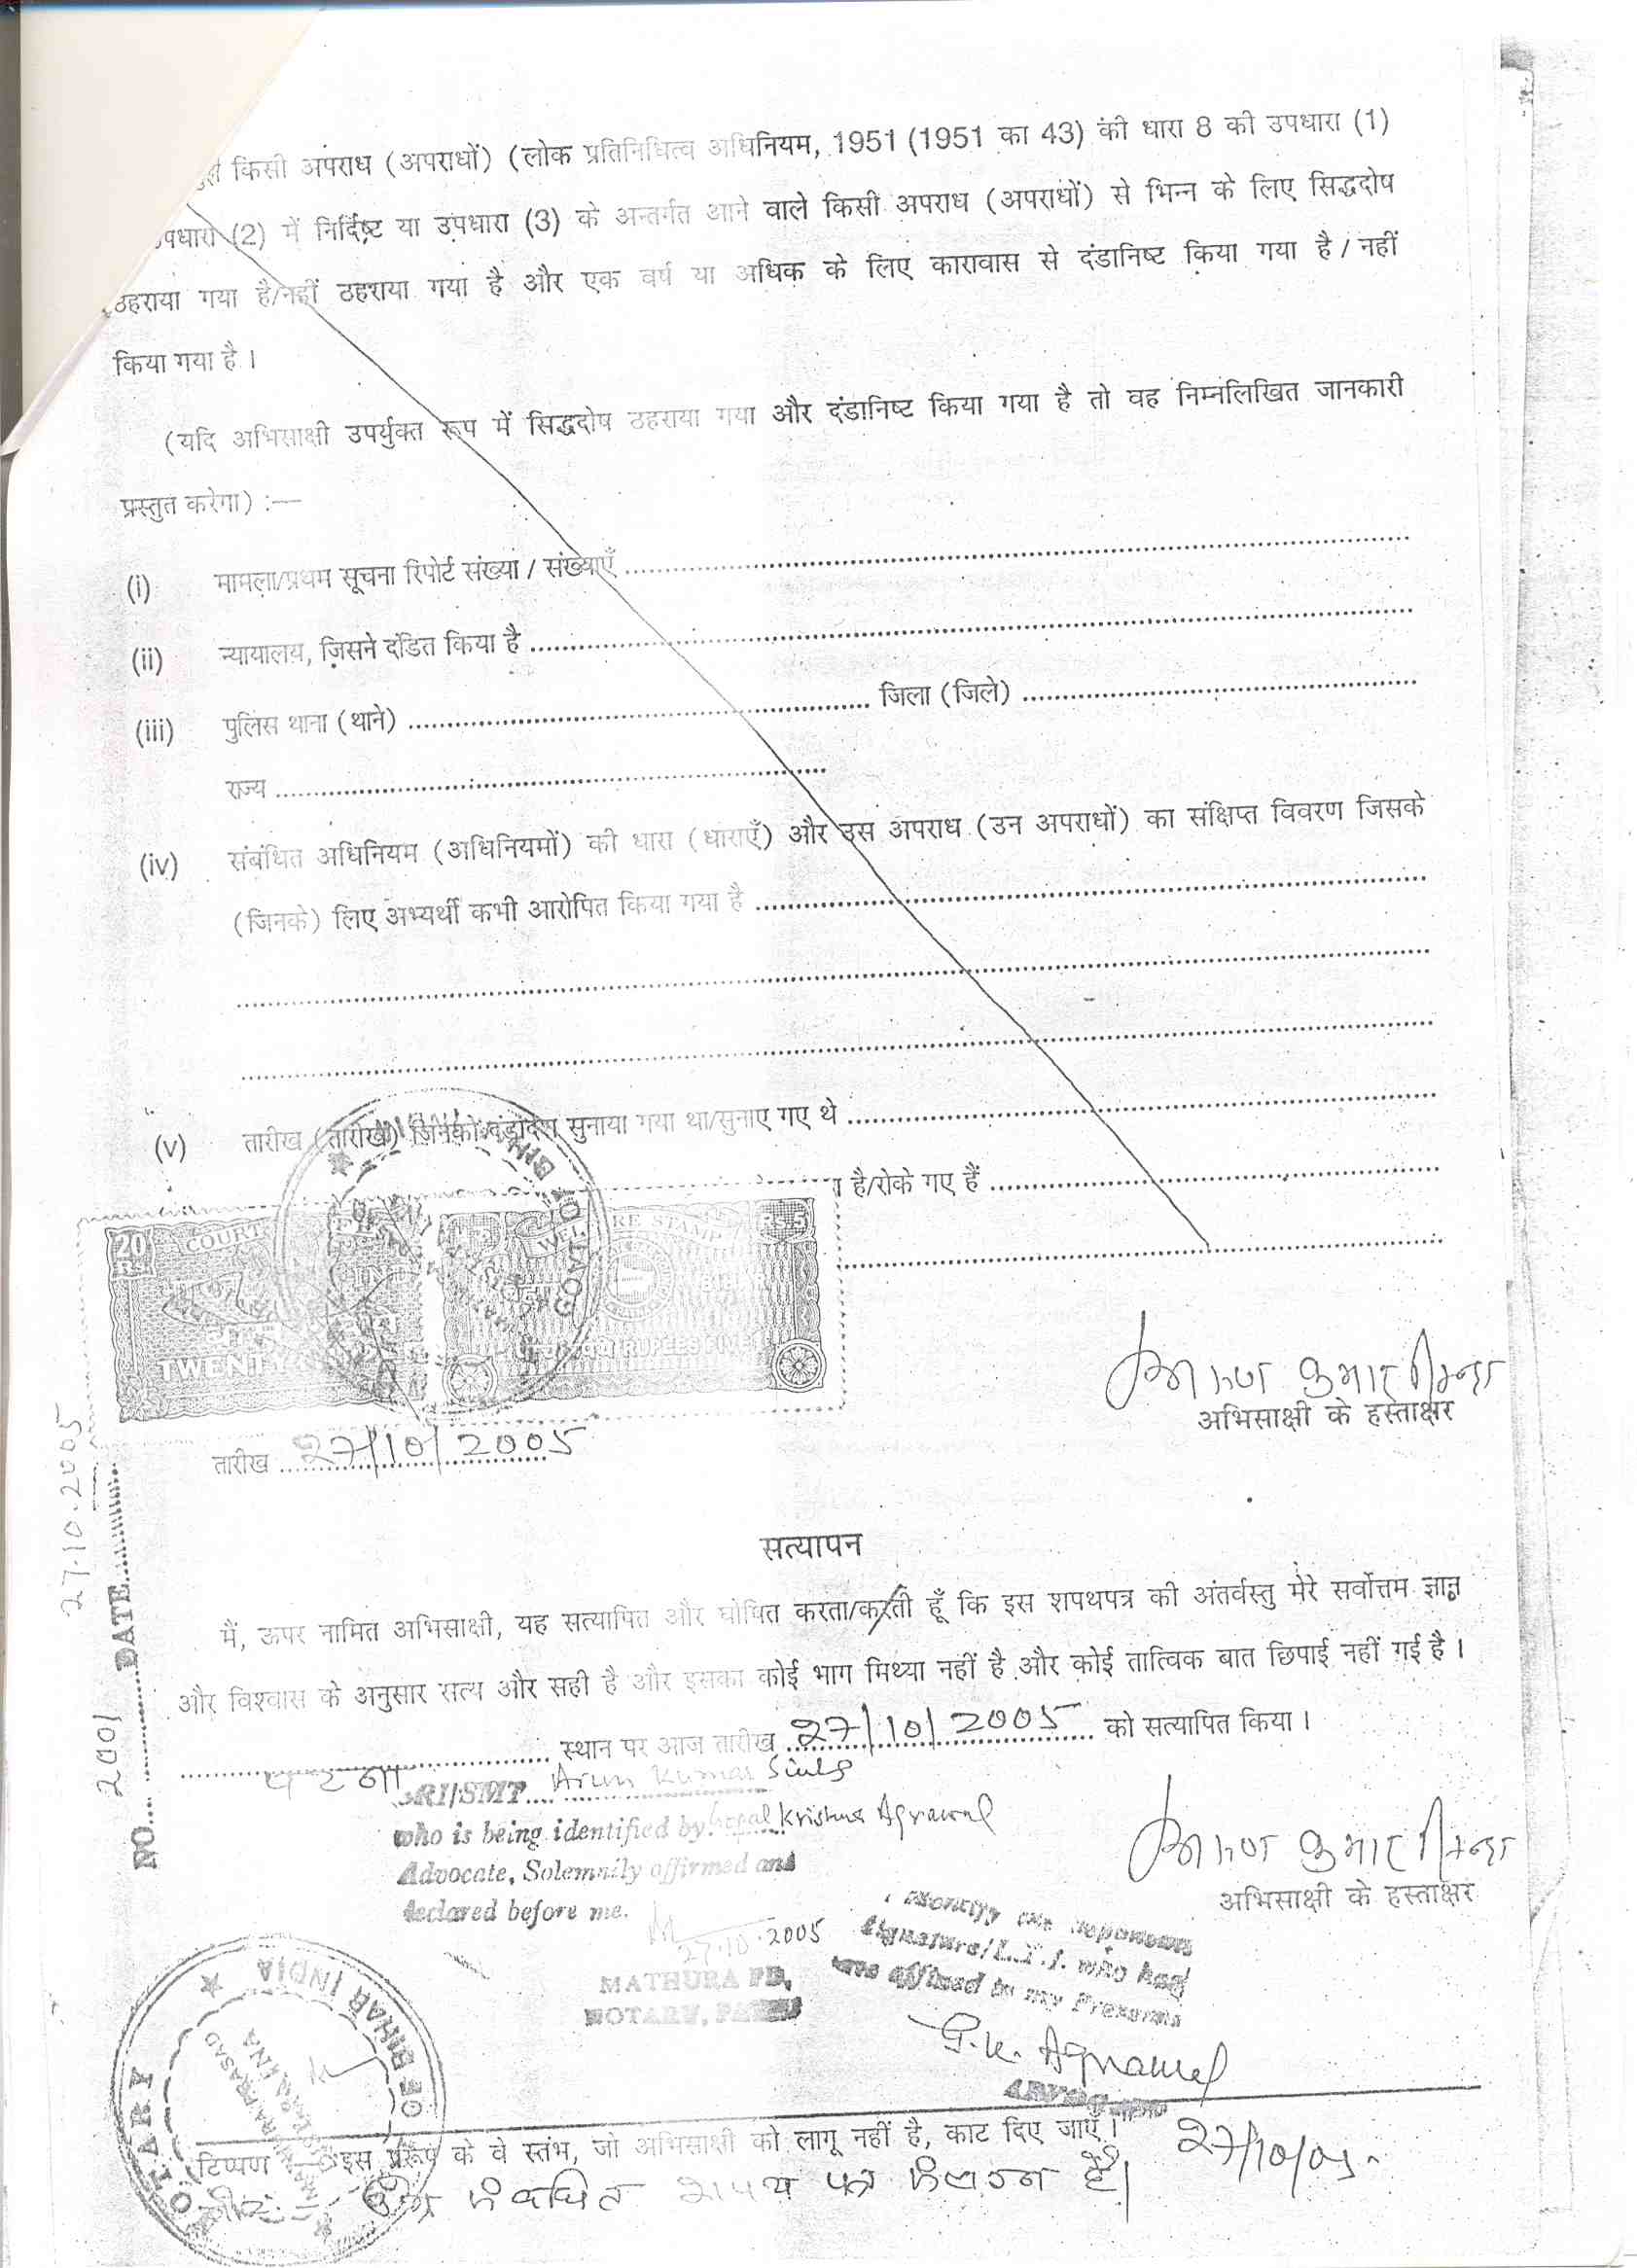 किसी अपराध (अपराधों) (लोक प्रतिनिधित्व अधिनियम, 1951 (1951 का 43) की धारा 8 की उपधारा (1)
उपधारा (2) में निर्दिष्ट या उपधारा (3) के अन्तर्गत आने वाले किसी अपराध (अपराधों) से भिन्न के लिए सिद्धदोष
ठहराया गया है/नहीं ठहराया गया है और एक वर्ष या अधिक के लिए कारावास से दंडानिष्ट किया गया है / नहीं
किया गया है ।
(यदि अभिसाक्षी उपर्युक्त रूप में सिद्धदोष ठहराया गया और दंडानिष्ट किया गया है तो वह निम्नलिखित जानकारी
प्रस्तुत करेगा) :—
(i) मामला/प्रथम सूचना रिपोर्ट संख्या / संख्याएँ
(ii) न्यायालय, जिसने दंडित किया है
(iii) पुलिस थाना (थाने) जिला (जिले)
राज्य
(iv) संबंधित अधिनियम (अधिनियमों) की धारा (धाराएँ) और उस अपराध (उन अपराधों) का संक्षिप्त विवरण जिसके
(जिनके) लिए अभ्यर्थी कभी आरोपित किया गया है
(v) तारीख (तारीखें) जिनको दंडादेश सुनाया गया था/सुनाए गए थे
है/रोके गए हैं
20 Rs. COURT WELFARE STAMP RS.5
BIHAR
TWENTY RUPEES FIVE
अरुण कुमार सिन्हा
अभिसाक्षी के हस्ताक्षर
तारीख 27/10/2005
NO. 2001 DATE 27.10.2005
सत्यापन
मैं, ऊपर नामित अभिसाक्षी, यह सत्यापित और घोषित करता/करती हूँ कि इस शपथपत्र की अंतर्वस्तु मेरे सर्वोत्तम ज्ञान
और विश्वास के अनुसार सत्य और सही है और इसका कोई भाग मिथ्या नहीं है और कोई तात्विक बात छिपाई नहीं गई है ।
पटना स्थान पर आज तारीख 27/10/2005 को सत्यापित किया ।
SRI/SMT. Arun Kumar Sinha
who is being identified by Gopal Krishna Agrawal
Advocate, Solemnily affirmed and
declared before me.
27.10.2005
MATHURA PD.
NOTARY, PATNA
अरुण कुमार सिन्हा
अभिसाक्षी के हस्ताक्षर
I Identify the deponent
Signature/L.T.I. who has
affixed in my Presence
G.K. Agrawal
ADVOCATE
27/10/05
NOTARY OF BIHAR INDIA
MATHURA PRASAD
टिप्पण इस प्ररूप के वे स्तंभ, जो अभिसाक्षी को लागू नहीं है, काट दिए जाएँ ।
संबंधित शपथ पत्र संलग्न है।